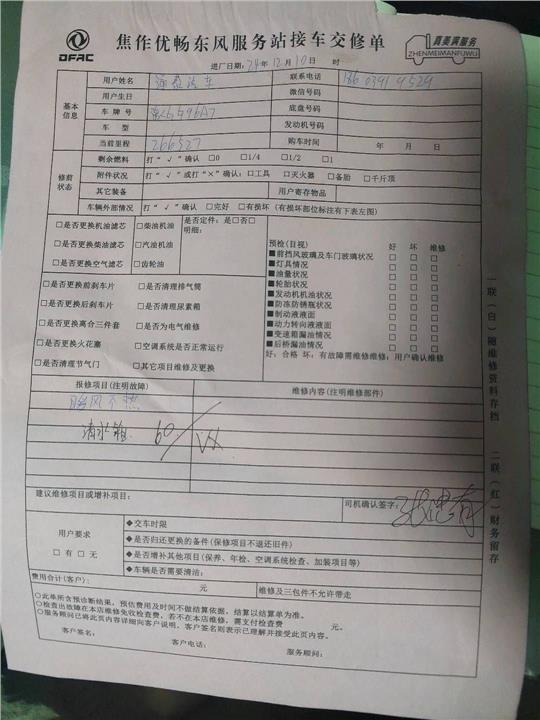 DFAC
焦作优畅东风服务站接车交修单
真美满服务
ZHENMEIMANFUWU
进厂日期:24年12月10日 时
基本信息
用户姓名 联系电话
用户生日 微信号码
车牌号 底盘号码
车型 发动机号码
当前里程 266527 购车时间 年 月 日
修前状态
剩余燃料 打“√”确认 □0 □1/4 □1/2 □1
附件状况 打“√”或打“×”确认:□工具 □灭火器 □备胎 □千斤顶
其它装备 用户寄存物品
车辆外部情况 打“√”确认 □完好 □有损坏(有损坏部位标注有下表左图)
□是否更换机油滤芯 □柴油机油 是否定件:是□否□
明细:
□是否更换柴油滤芯 □汽油机油
□是否更换空气滤芯 □齿轮油
□是否更换前刹车片 □是否清理排气筒
□是否更换后刹车片 □是否清理尿素箱
□是否更换离合三件套 □是否为电气维修
□是否更换火花塞 □空调系统是否正常运行
□是否清理节气门 □其它项目维修及更换
预检(目视) 好 坏 维修
■前挡风玻璃及车门玻璃状况 □ □ □
■灯具情况 □ □ □
■油量状况 □ □ □
■轮胎状况 □ □ □
■发动机机油状况 □ □ □
■防冻防锈瓶状况 □ □ □
■制动液液面 □ □ □
■动力转向液液面 □ □ □
■变速箱漏油情况 □ □ □
■后桥漏油情况 □ □ □
好:合格 坏:有故障需维修维修:用户确认维修
报修项目(注明故障) 维修内容(注明维修部件)
暖风不热
清水箱 60
建议维修项目或增补项目: 司机确认签字:
用户要求
□有 □无
◆交车时限
◆是否归还更换的备件(保修项目不退还旧件)
◆是否增补其他项目(保养、年检、空调系统检查、加装项目等)
◆车辆是否需要清洁:
费用合计(客户): 元 维修及三包件不允许带走
○此单所含预诊断结果,预估费用及时间不做结算依据,结算以结算单为准。
○检查出故障在本店维修免收检查费,若不在本店维修,需支付检查费 元。
○服务顾问已将此页内容详细向客户说明,客户签名则表示已理解并接受此页内容。
客户签名: 客户电话: 服务顾问:
一联(白)随维修资料存档
二联(红)财务留存